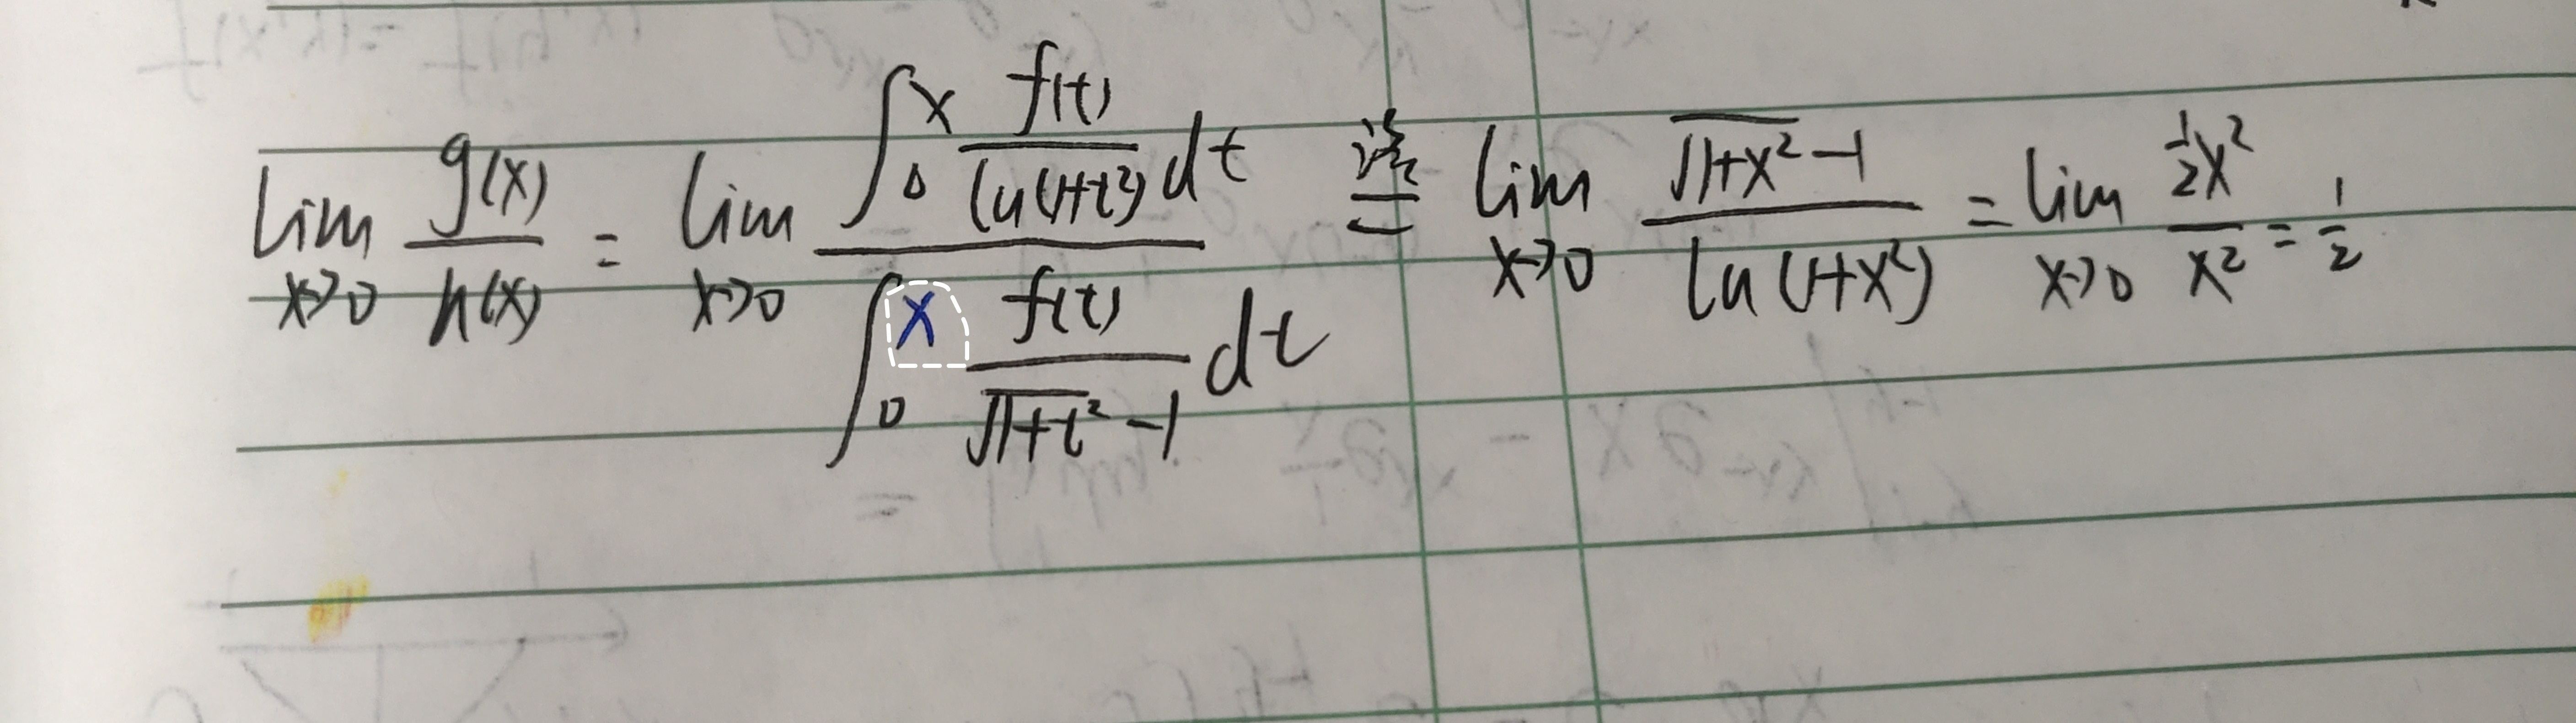 lim x→0 g(x)/h(x) = lim x→0 (∫₀ˣ f(t)/ln(1+t²) dt)/(∫₀ˣ f(t)/(√(1+t²) -1) dt) 洛= lim x→0 (√(1+x²) -1)/ln(1+x²) = lim x→0 (½x²)/x² = 1/2